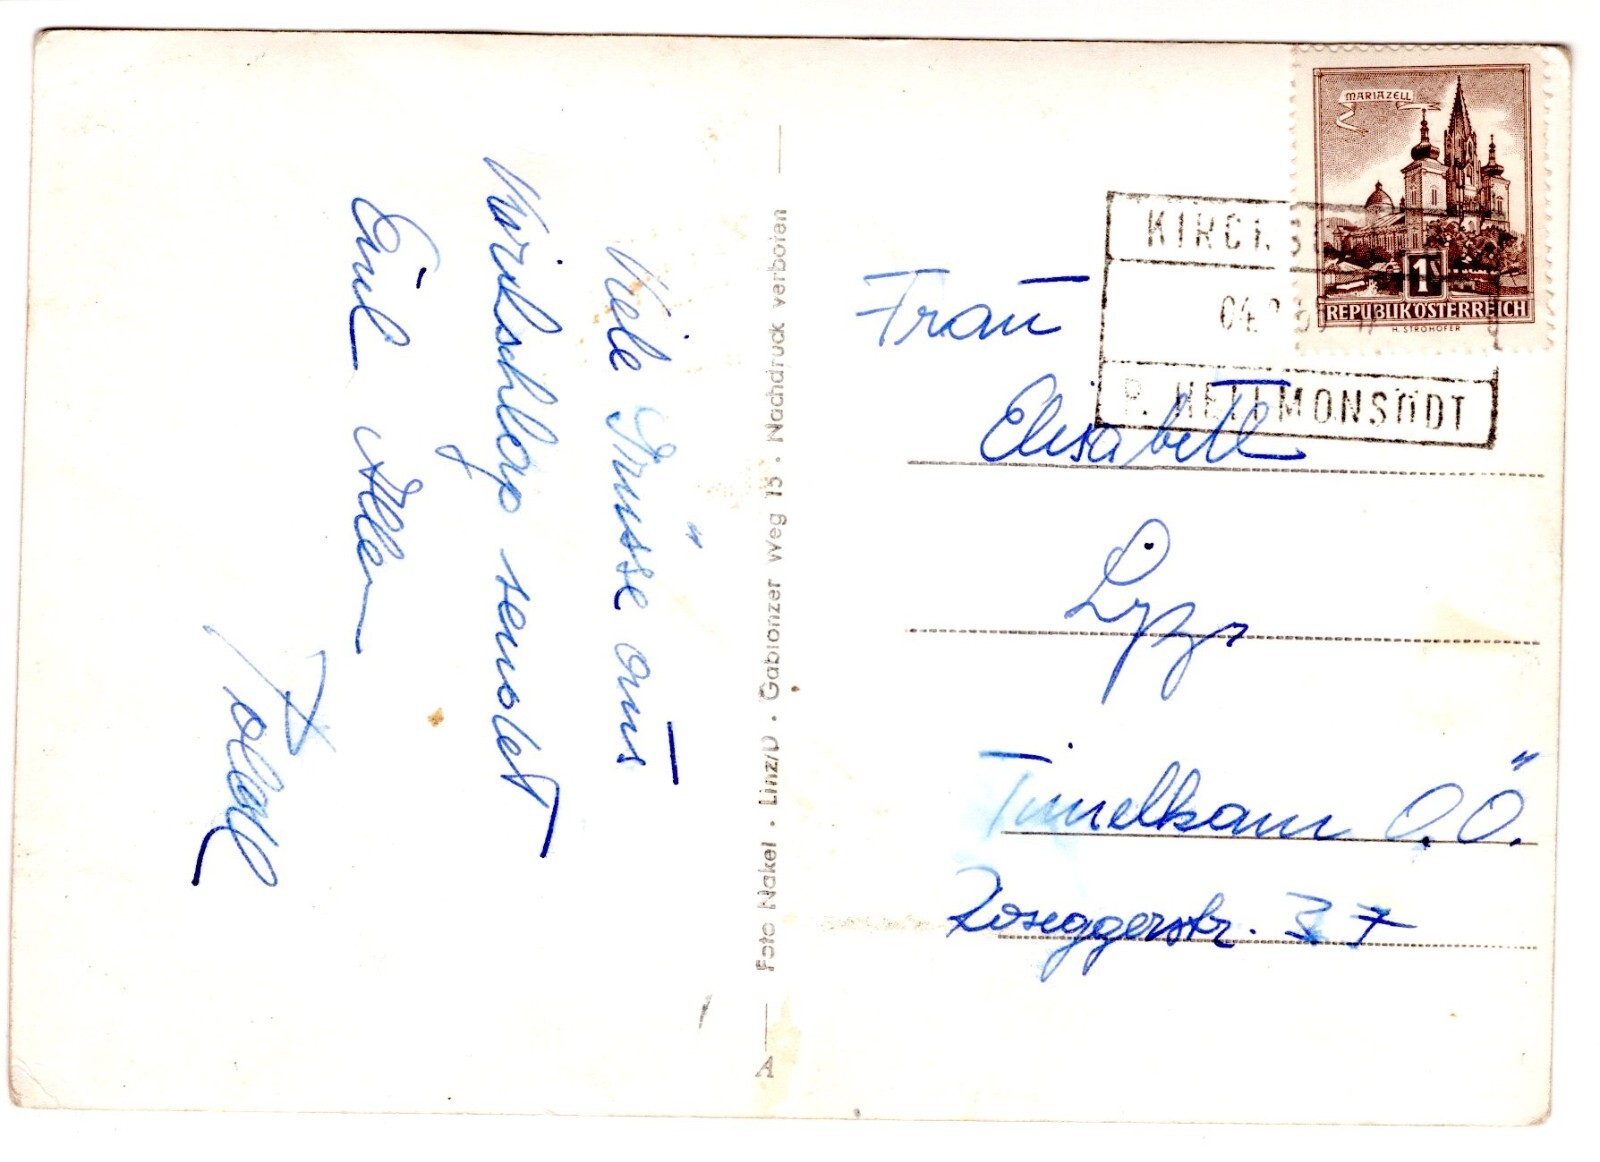 Viele Grüsse aus
Kirchschlag sendet
Euch Allen
Poldl
Foto Nakel · Linz/D · Gablonzer Weg 15 · Nachdruck verboten
A
MARIAZELL
1
REPUBLIK ÖSTERREICH
H. STROHOFER
P. HELLMONSÖDT
Frau
Elisabeth
Timelkam O.Ö.
Roseggerstr. 37